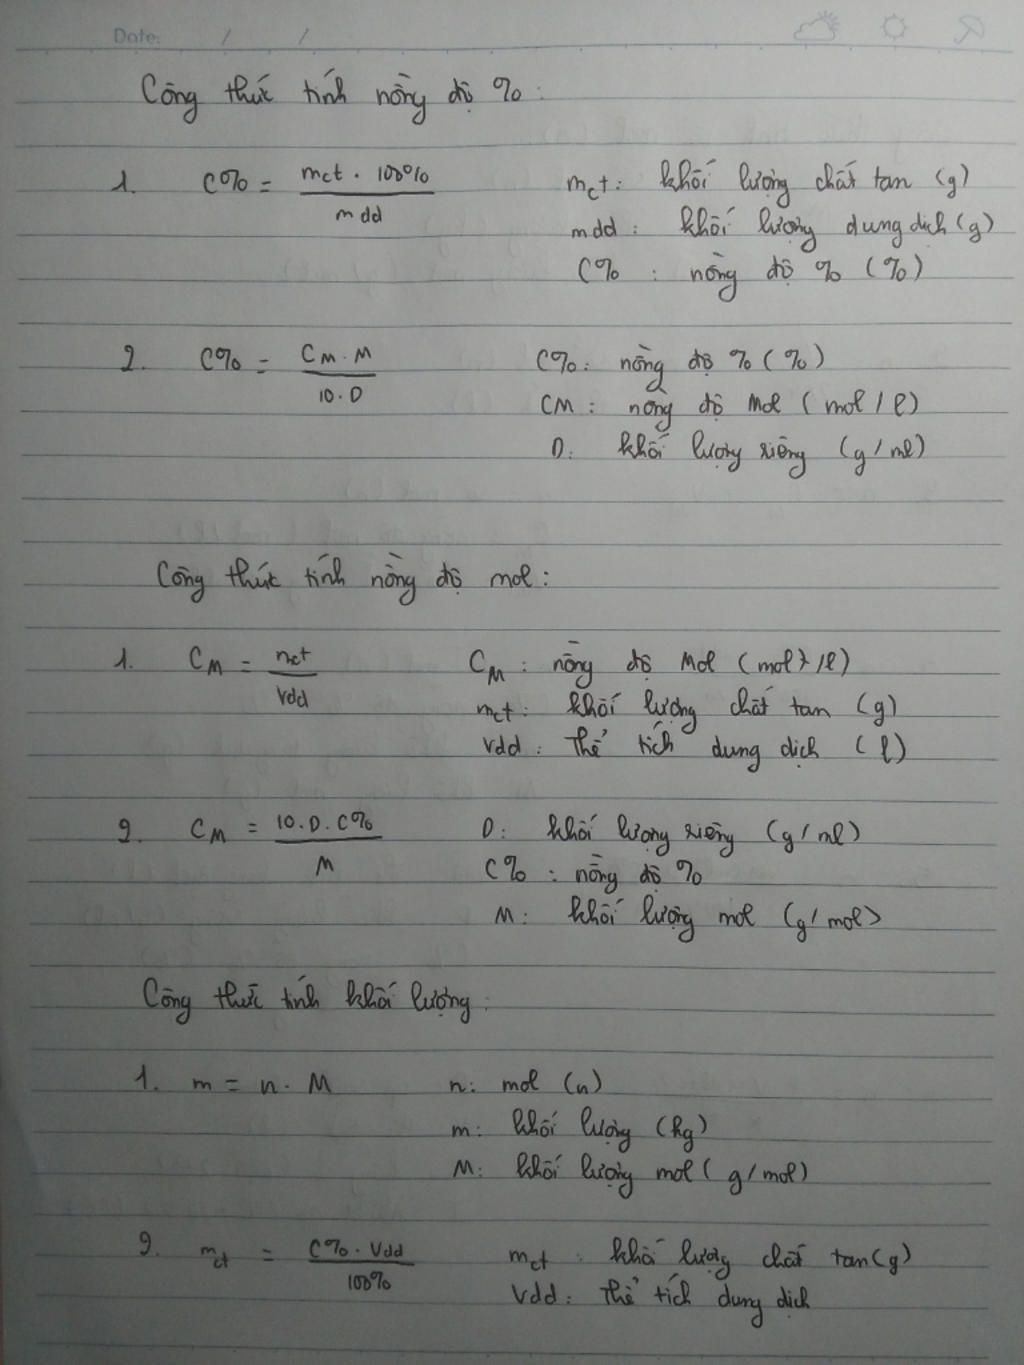 Date: / /
Công thức tính nồng độ %:
1. C% = mct . 100% / mdd mct: khối lượng chất tan (g)
mdd: khối lượng dung dịch (g)
C%: nồng độ % (%)
2. C% = CM . M / 10 . D C%: nồng độ % (%)
CM: nồng độ Mol (mol/l)
D: khối lượng riêng (g/ml)
Công thức tính nồng độ mol:
1. CM = nct / Vdd CM: nồng độ Mol (mol/l)
mct: khối lượng chất tan (g)
Vdd: Thể tích dung dịch (l)
2. CM = 10 . D . C% / M D: khối lượng riêng (g/ml)
C%: nồng độ %
M: khối lượng mol (g/mol)
Công thức tính khối lượng:
1. m = n . M n: mol (n)
m: khối lượng (kg)
M: khối lượng mol (g/mol)
2. mct = C% . Vdd / 100% mct: khối lượng chất tan (g)
Vdd: Thể tích dung dịch